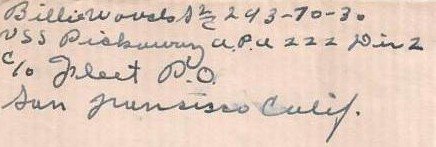 Billie Woods S 2/c 293-70-30
USS Pickaway A.P.A 222 Div 2
c/o Fleet P.O.
San Francisco Calif.